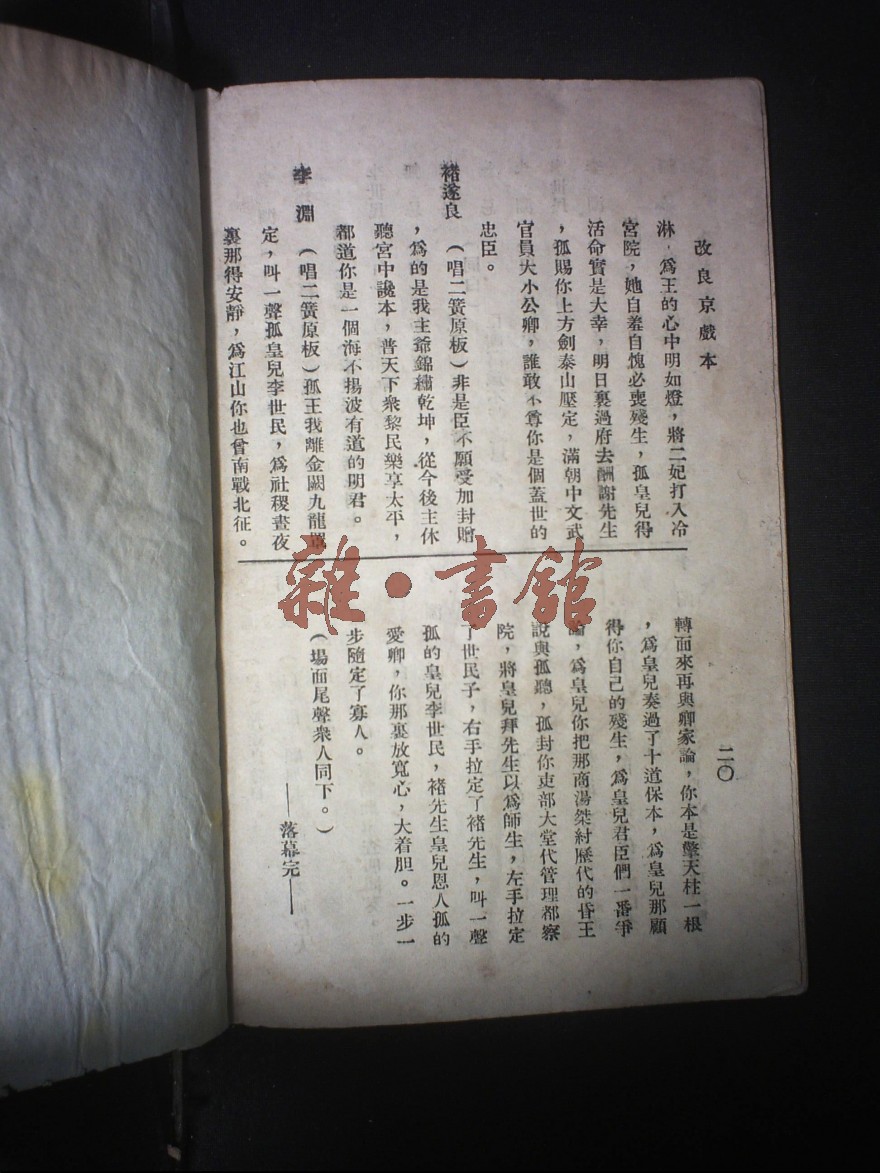 改良京戲本
淋，爲王的心中明如燈，將二妃打入冷
宮院，她自羞自愧必喪殘生，孤皇兒得
活命實是大幸，明日裏過府去酬謝先生
，孤賜你上方劍泰山壓定，滿朝中文武
官員大小公卿，誰敢不尊你是個蓋世的
忠臣。
褚遂良 （唱二簧原板）非是臣不願受加封贈
，爲的是我主爺錦繡乾坤，從今後主休
聽宮中讒本，普天下衆黎民樂享太平，
都道你是一個海不揚波有道的明君。
李淵 （唱二簧原板）孤王我離金闕九龍
定，叫一聲孤皇兒李世民，爲社稷晝夜
裏那得安靜，爲江山你也曾南戰北征。
轉面來再與卿家論，你本是擎天柱一根
，爲皇兒奏過了十道保本，爲皇兒那顧
得你自己的殘生，爲皇兒君臣們一番爭
論，爲皇兒你把那商湯桀紂歷代的昏王
說與孤聽，孤封你吏部大堂代管理都察
院，將皇兒拜先生以爲師生，左手拉定
了世民子，右手拉定了褚先生，叫一聲
孤的皇兒李世民，褚先生皇兒恩人孤的
愛卿，你那裏放寬心，大着胆。一步一
步隨定了寡人。
（場面尾聲衆人同下。）
——落幕完——
二〇
雜·書館